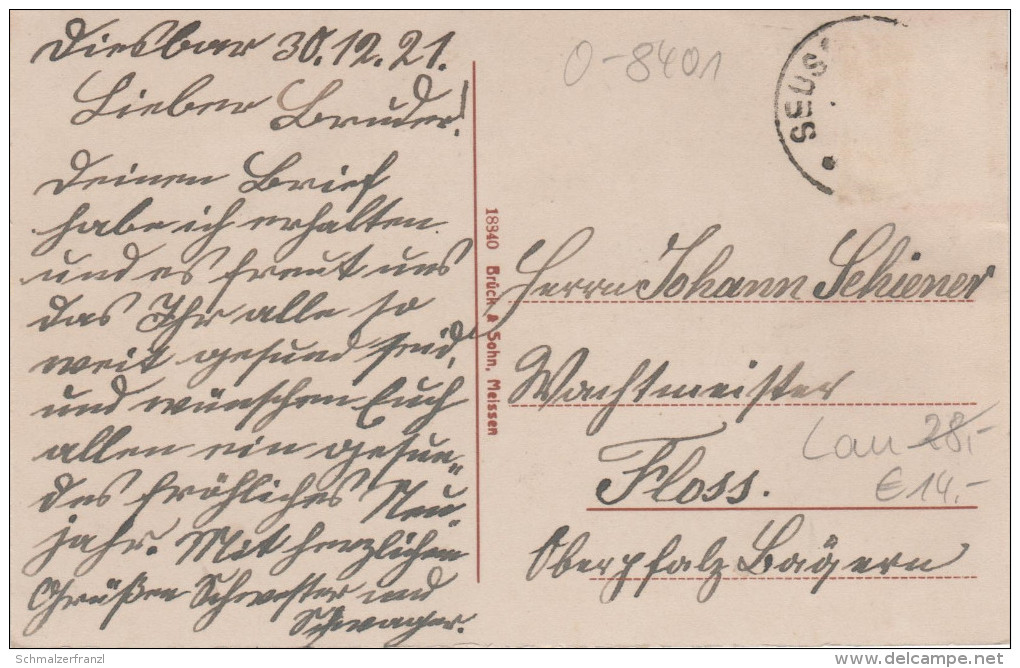 Diesbar 30.12.21.
Lieber Bruder!
Deinen Brief
habe ich erhalten
und es freut uns
das Ihr alle so
weit gesund seid,
und wünschen Euch
allen ein gesun„
des fröhliches Neu„
jahr. Mit herzlichen
Grüßen Schwester und
Schwager.
18840 Brück & Sohn, Meissen
O-8401
SEUS
Herrn Johann Schiener
Wachtmeister
Floss.
Oberpfalz Bayern
Lau 28,-
€ 14,-
Schmalzerfranzl
delcampe.net